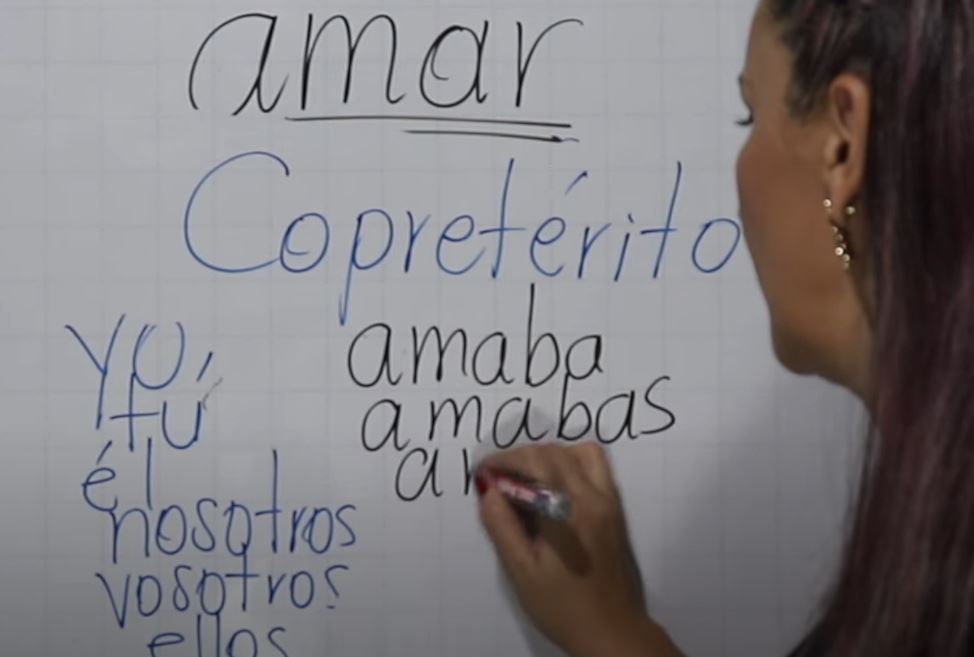 amar
Copretérito
yo, amaba
tú amabas
él a
nosotros
vosotros
ellos